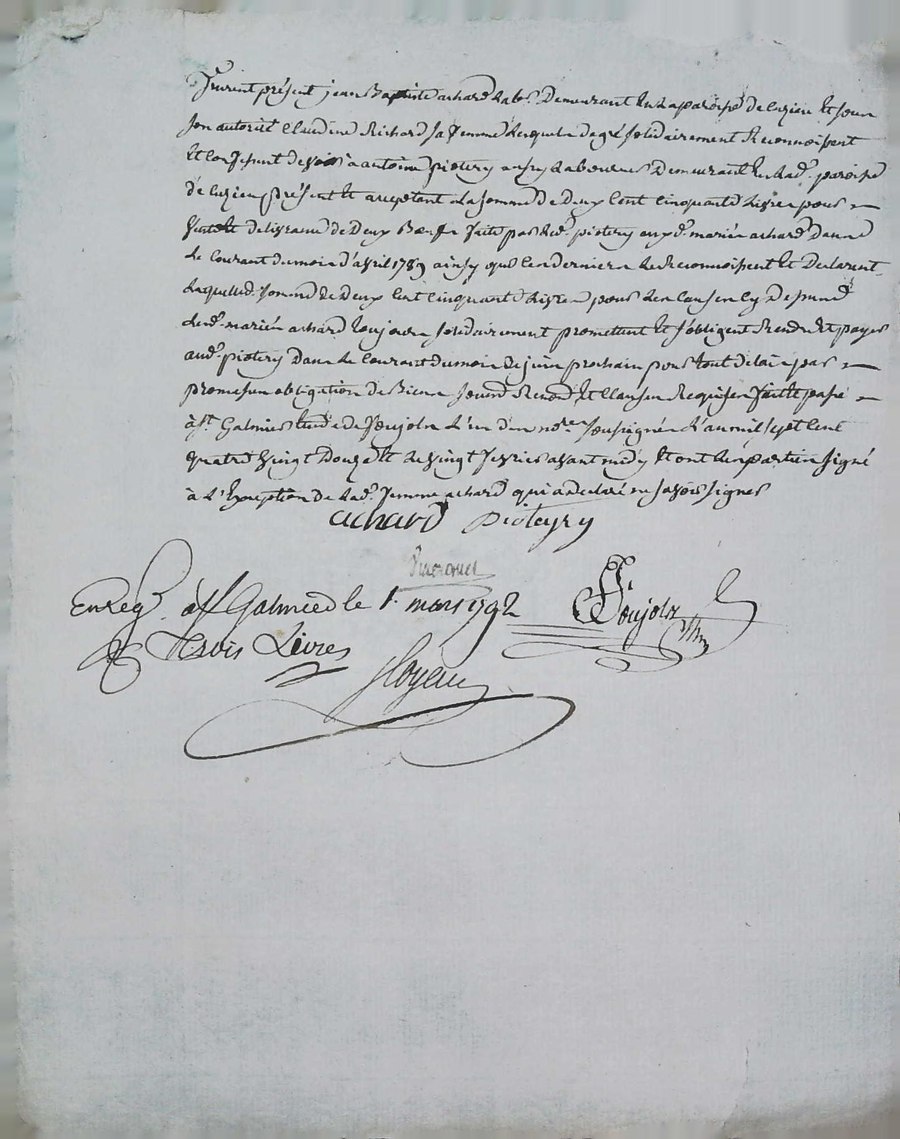 furent présent jean Baptiste achard lab.r Demeurant en la paroisse de luzieu Et sous
son autorité Claudine Richard sa femme lesquels de gré solidairement Reconnoissent
Et Confessent devoir à antoine pioteyry aussy laboureur Demeurant en lad. paroisse
de luzieu présent Et acceptant la somme de Deux Cent Cinquante livres pour
vente Et délivrance de Deux Bœufs faite par led. pioteyry aux d. mariés achard Dans
le Courant du mois d'avril 1789 ainsy que les derniers le Reconnoissent Et Declarent
laquelle d. somme de Deux Cent Cinquante livres pour les Causes Cy Dessus
les d. mariés achard toujours solidairement promettent Et s'obligent Rendre Et payer
aud. pioteyry Dans le Courant du mois de juin prochain pour tout délai par
promesses obligation de Biens Renond. Et Clauses Requises faitte passé
à St. Galmier Etude de Poujolx l'un des no.res soussigné l'an mil sept Cent
quatre Vingt Douze Et le vingt fevrier avant midy Et ont les parties signé
à L'Exception de lad. femme achard qui a declaré ne savoir signer
achard pioteyry
Poujolx
Enreg. à St Galmier le 1. mars 1792
R. trois Livres